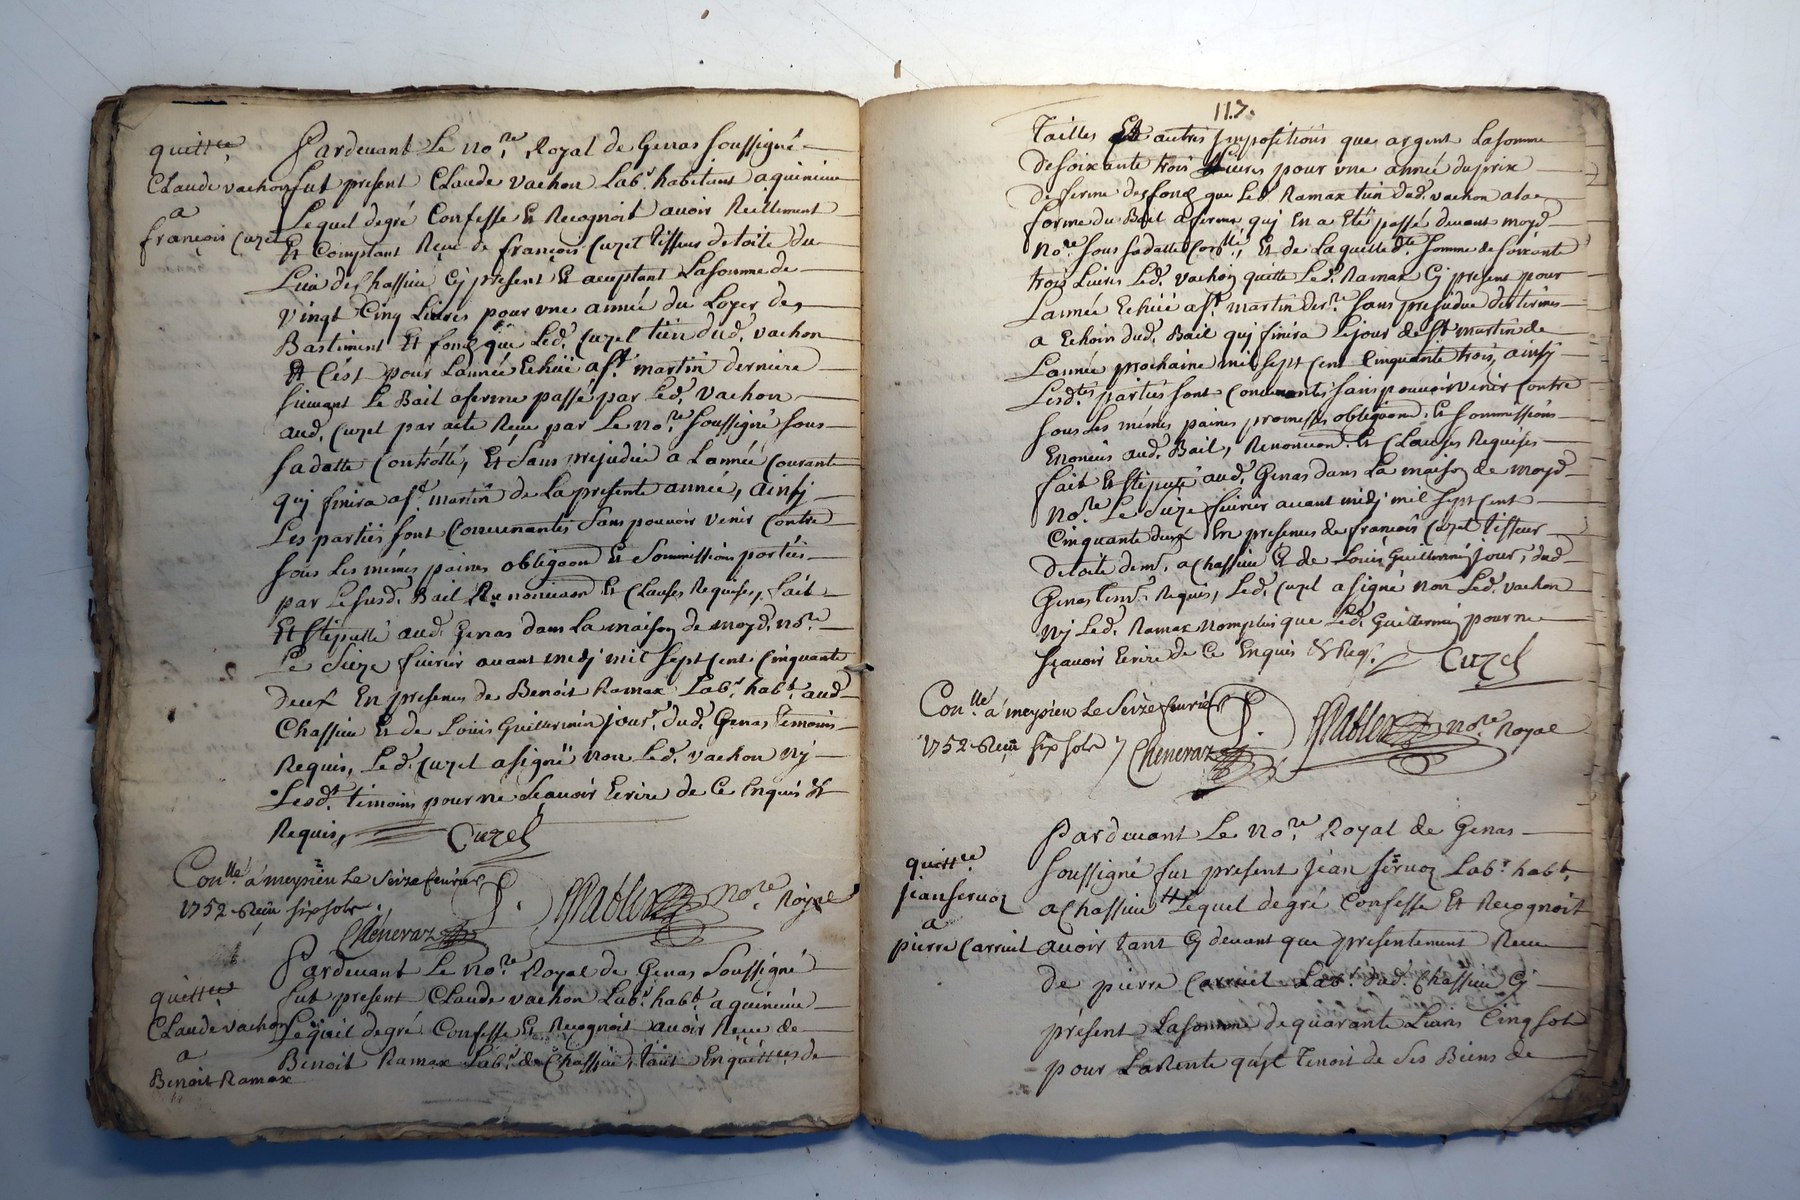 quittce
Claude vachon
a
françois Cuzel
Pardevant Le no.re Royal de Genas soussigné
fut présent Claude vachon Lab.r habitant a quincieu
Lequel de gré Confesse Et Recognoit avoir Réellement
Et Comptant Reçue de françois Cuzel tisseur de toile du
Lieu de Chassieu Cy présent Et aceptant La somme de
vingt Cinq Livres pour vne année du Loyer des
Bastiment Et fond que Led. Cuzel tien dud. vachon
Et C'ést pour L'année Echüe a s.t martin derniere
suivant Le Bail a ferme passé par Led. vachon
aud. Cuzel par acte Reçu par Le no.re soussigné sous
sa datte Controllé, Et sans préjudice a L'année Courante
quj finira a s.t martin de La présente année, ainsj
Les parties sont Convenantes sans pouvoir venir Contre
sous Les mêmes paines obligaon Et sommissions portées
par Le susd. Bail Renonciaon Et Clauses Requises, fait
Et stipullé aud. Genas dans La maison de moyd. no.re
Le Seize fevrier avant midj mil sept Cent Cinquante
deux En présence de Benoit Ramax Lab.r hab.t aud
Chassieu Et de Louis Guillermin jour.r dud. Genas temoins
Requis, Led. Cuzel a signé non Led. vachon nj
Lesd.t temoins pour ne sçavoir Ecrire de Ce Enquis Et
Requis, Cuzel
Con.llé a meyzieu Le Seize fevrier
1752 Reçu six sols.
Cheneraz
no.re Royal
quittce
Claude vachon
a
Benoit Ramax
Pardevant Le no.re Royal de Genas Soussigné
fut présent Claude vachon Lab.r hab.t a quincieu
Lequel de gré Confesse Et Recognoit avoir Reçue de
Benoit Ramax Lab.r de Chassieu, tant En quittces de
117.
Tailles Et autres jmpositions que argent La somme
de soixante trois Livres pour vne année du prix
de ferme des fond que Led. Ramax tien dud. vachon a la
forme du Bail a ferme quj En a Eté passé devant moyd
no.re sous sa datte Con.llé, Et de Laquelle d.te somme de soixante
trois Livres Led. vachon quitte Led. Ramax Cy présent pour
L'année Echüe a s.t martin der.re sans préjudice des termes
a Echoir dud. Bail quj finira Le jour de s.t martin de
L'année prochaine mil sept Cent Cinquante trois, ainsj
Lesd.tes parties sont Convenantes sans pouvoir venir Contre
sous Les mêmes paines promesses obligaons Et sommissions
Enoncées aud. Bail, Renonciaon Et Clauses Requises
fait Et stipulé aud. Genas dans La maison de moyd
no.re Le Seize fevrier avant midj mil sept Cent
Cinquante deux En présence de françois Cuzel tisseur
de toile dem.t a Chassieu Et de Louis Guillermin jour.r dud
Genas tem.s Requis, Led. Cuzel a signé non Led. vachon
nj Led. Ramax non plus que Led. Guillermin pour ne
sçavoir Ecrire de Ce Enquis & Req. Cuzel
Con.llé a meyzieu Le Seize fevrier
1752 Reçu six sols
Cheneraz
no.re Royal
quittce
Jean servoz
a
pierre Carruil
Pardevant Le no.re Royal de Genas
soussigné fut présent Jean servoz Lab.r hab.t
a Chassieu Lequel de gré Confesse Et Recognoit
avoir tant Cy devant que présentement Reçue
de pierre Carruil Lab.r dud. Chassieu Cy
présent La somme de quarante Livres Cinq sols
pour La Rente qu'jl Tenoit de Ses Biens de